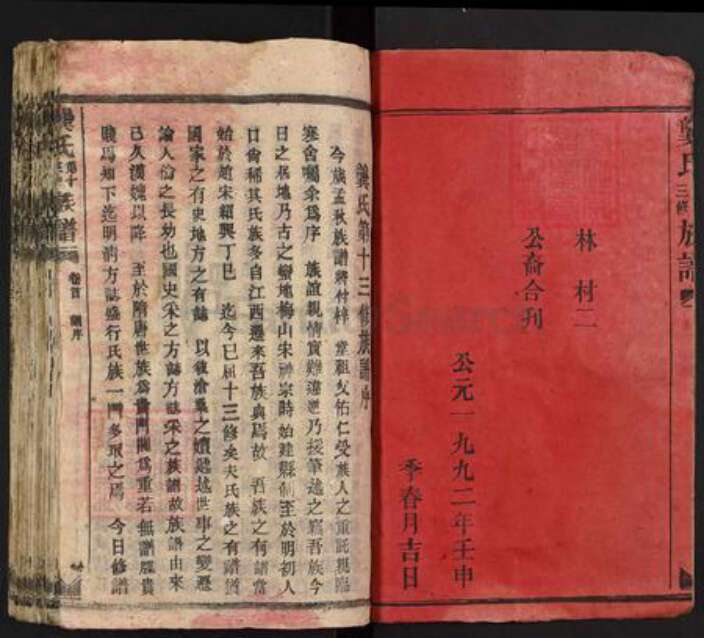 龔氏三修族譜
林村二
公裔合刊
公元一九九二年壬申
季春月吉日
龔氏第十三修族譜序
今歲孟秋族譜將付梓 堂祖父佑仁受族人之重託親臨
寒舍囑余爲序 族誼親情實難違逆乃援筆述之竊吾族今
日之居地乃古之蠻地梅山宋神宗時始建縣制至於明初人
口尙稀其氏族多自江西遷來吾族與焉故 吾族之有譜當
始於趙宋紹興丁巳 迄今已屆十三修矣夫氏族之有譜猶
國家之有史地方之有誌 以敘滄桑之嬗越述世事之變遷
論人倫之長幼也國史采之方誌方誌采之族譜故族譜由來
已久漢魏以降 至於隋唐世族爲貴門閥爲重若無譜牒貴
賤焉知下迄明淸方誌盛行氏族一門多取之焉 今日修譜
龔氏第十三修族譜
卷首 譜序